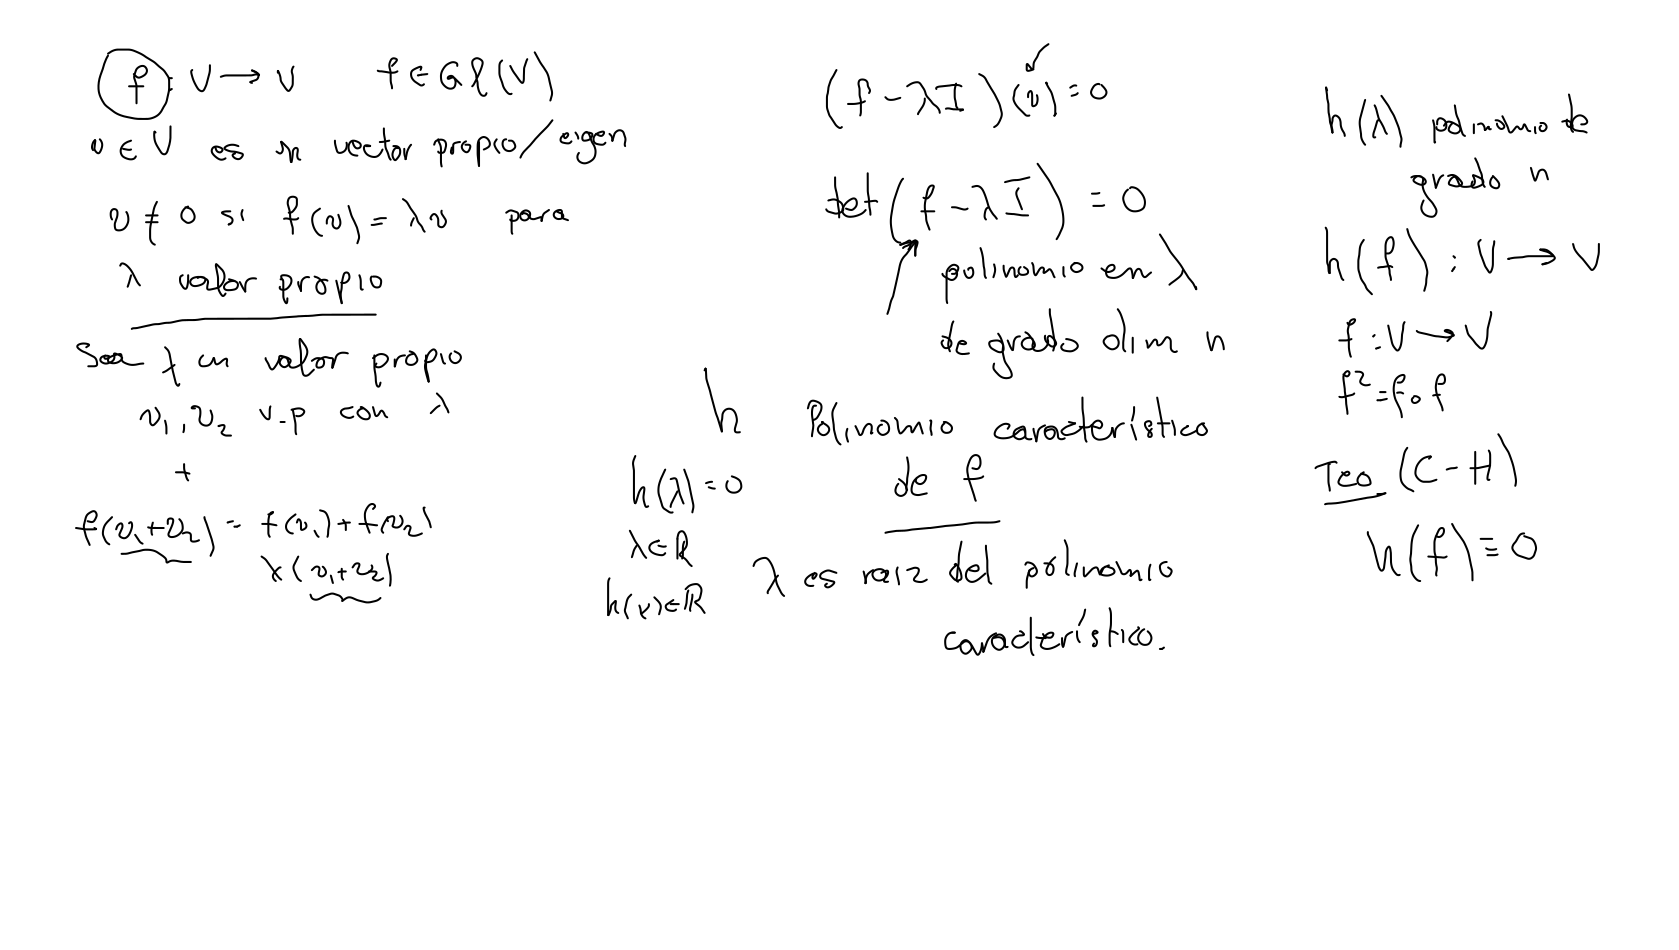 f : V → V    f ∈ Gl(V)
v ∈ V es un vector propio/eigen
v ≠ 0 si f(v) = λv para
λ valor propio
Sea λ un valor propio
v₁, v₂ v.p con λ
+
f(v₁+v₂) = f(v₁) + f(v₂)
λ(v₁+v₂)
(f - λI)(v) = 0
det(f - λI) = 0
polinomio en λ
de grado dim n
h Polinomio característico
de f
h(λ) = 0
λ ∈ R
h(λ) ∈ R
λ es raiz del polinomio
característico.
h(λ) polinomio de
grado n
h(f) : V → V
f : V → V
f² = f∘f
Teo (C-H)
h(f) ≡ 0